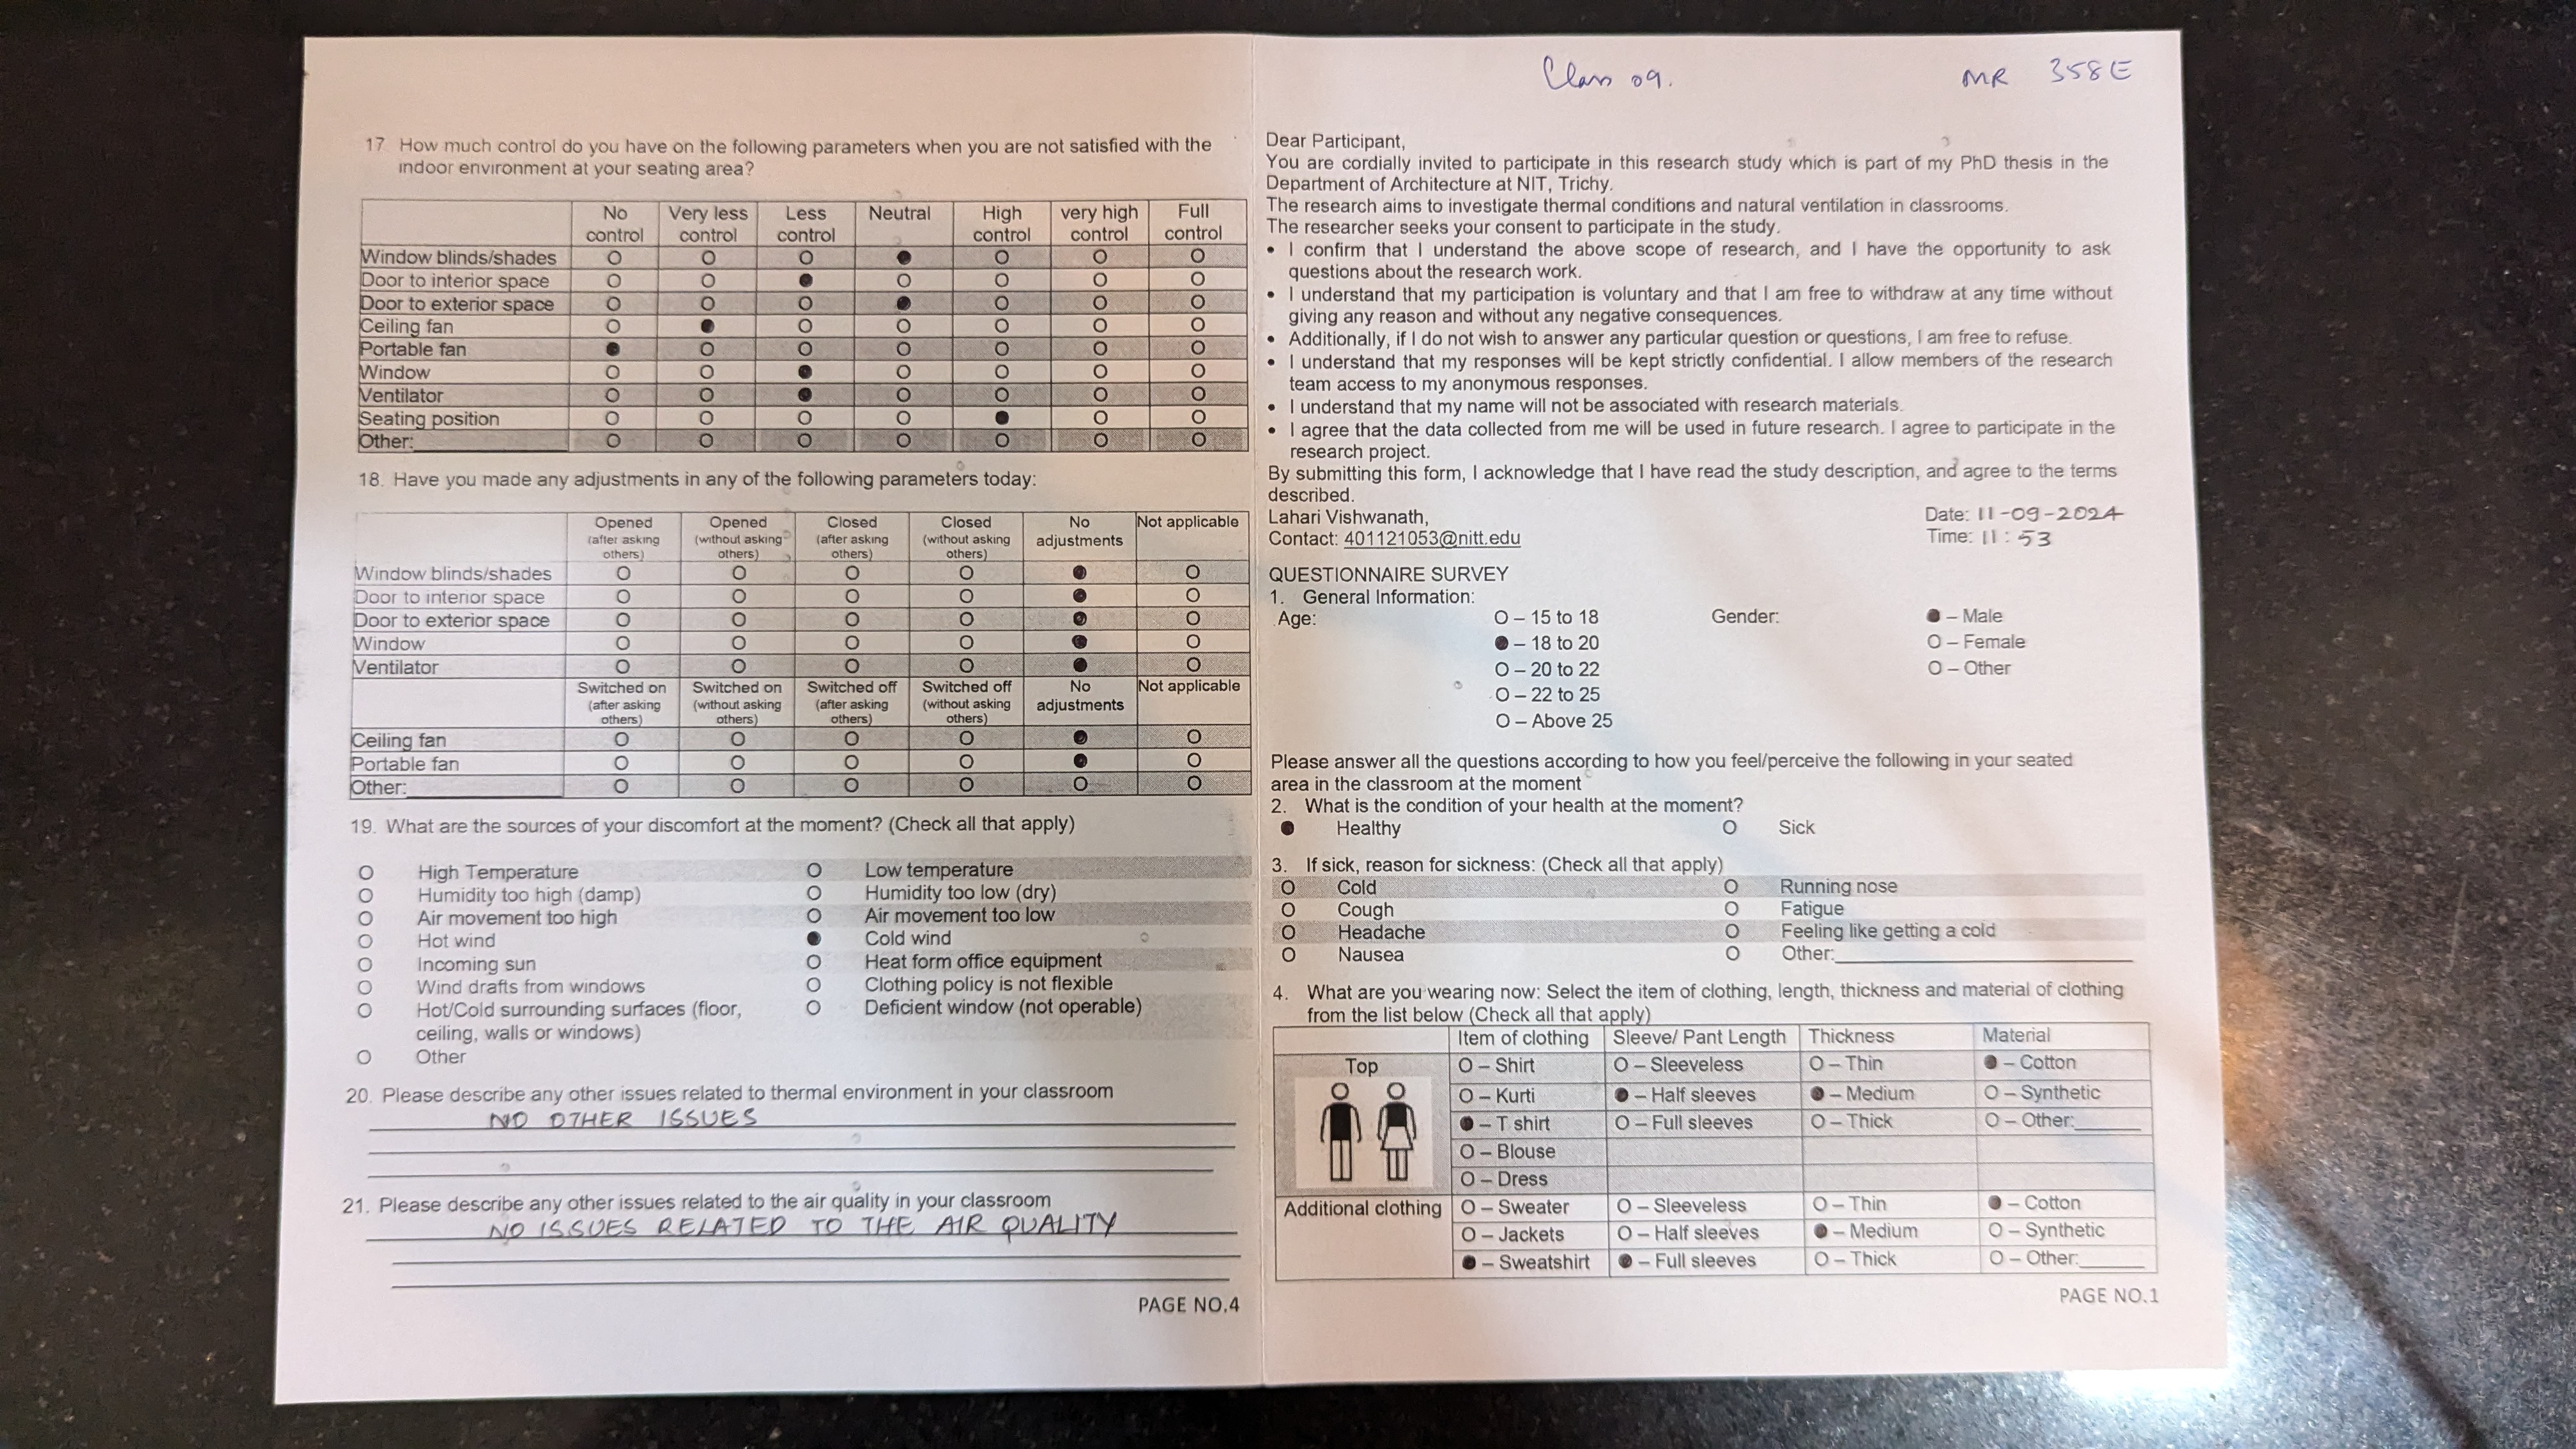 17 How much control do you have on the following parameters when you are not satisfied with the
indoor environment at your seating area?
No control Very less control Less control Neutral High control very high control Full control
Window blinds/shades O O O ● O O O
Door to interior space O O ● O O O O
Door to exterior space O O O ● O O O
Ceiling fan O ● O O O O O
Portable fan ● O O O O O O
Window O O ● O O O O
Ventilator O O ● O O O O
Seating position O O O O ● O O
Other:__________ O O O O O O O
18. Have you made any adjustments in any of the following parameters today:
Opened (after asking others) Opened (without asking others) Closed (after asking others) Closed (without asking others) No adjustments Not applicable
Window blinds/shades O O O O ● O
Door to interior space O O O O ● O
Door to exterior space O O O O ● O
Window O O O O ● O
Ventilator O O O O ● O
Switched on (after asking others) Switched on (without asking others) Switched off (after asking others) Switched off (without asking others) No adjustments Not applicable
Ceiling fan O O O O ● O
Portable fan O O O O ● O
Other:__________ O O O O O O
19. What are the sources of your discomfort at the moment? (Check all that apply)
O High Temperature O Low temperature
O Humidity too high (damp) O Humidity too low (dry)
O Air movement too high O Air movement too low
O Hot wind ● Cold wind
O Incoming sun O Heat form office equipment
O Wind drafts from windows O Clothing policy is not flexible
O Hot/Cold surrounding surfaces (floor, O Deficient window (not operable)
ceiling, walls or windows)
O Other
20. Please describe any other issues related to thermal environment in your classroom
NO OTHER ISSUES
21. Please describe any other issues related to the air quality in your classroom
NO ISSUES RELATED TO THE AIR QUALITY
PAGE NO.4
Class 09. MR 358E
Dear Participant,
You are cordially invited to participate in this research study which is part of my PhD thesis in the
Department of Architecture at NIT, Trichy.
The research aims to investigate thermal conditions and natural ventilation in classrooms.
The researcher seeks your consent to participate in the study.
• I confirm that I understand the above scope of research, and I have the opportunity to ask
questions about the research work.
• I understand that my participation is voluntary and that I am free to withdraw at any time without
giving any reason and without any negative consequences.
• Additionally, if I do not wish to answer any particular question or questions, I am free to refuse.
• I understand that my responses will be kept strictly confidential. I allow members of the research
team access to my anonymous responses.
• I understand that my name will not be associated with research materials.
• I agree that the data collected from me will be used in future research. I agree to participate in the
research project.
By submitting this form, I acknowledge that I have read the study description, and agree to the terms
described.
Lahari Vishwanath, Date: 11-09-2024
Contact: 401121053@nitt.edu Time: 11:53
QUESTIONNAIRE SURVEY
1. General Information:
Age: O – 15 to 18 Gender: ● – Male
● – 18 to 20 O – Female
O – 20 to 22 O – Other
O – 22 to 25
O – Above 25
Please answer all the questions according to how you feel/perceive the following in your seated
area in the classroom at the moment
2. What is the condition of your health at the moment?
● Healthy O Sick
3. If sick, reason for sickness: (Check all that apply)
O Cold O Running nose
O Cough O Fatigue
O Headache O Feeling like getting a cold
O Nausea O Other:__________
4. What are you wearing now: Select the item of clothing, length, thickness and material of clothing
from the list below (Check all that apply)
Item of clothing Sleeve/ Pant Length Thickness Material
Top O – Shirt O – Sleeveless O – Thin ● – Cotton
O – Kurti ● – Half sleeves ● – Medium O – Synthetic
● – T shirt O – Full sleeves O – Thick O – Other:______
O – Blouse
O – Dress
Additional clothing O – Sweater O – Sleeveless O – Thin ● – Cotton
O – Jackets O – Half sleeves ● – Medium O – Synthetic
● – Sweatshirt ● – Full sleeves O – Thick O – Other:______
PAGE NO.1